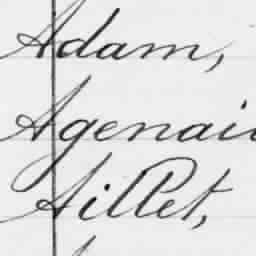 Adam,
Agenai
Aillet,